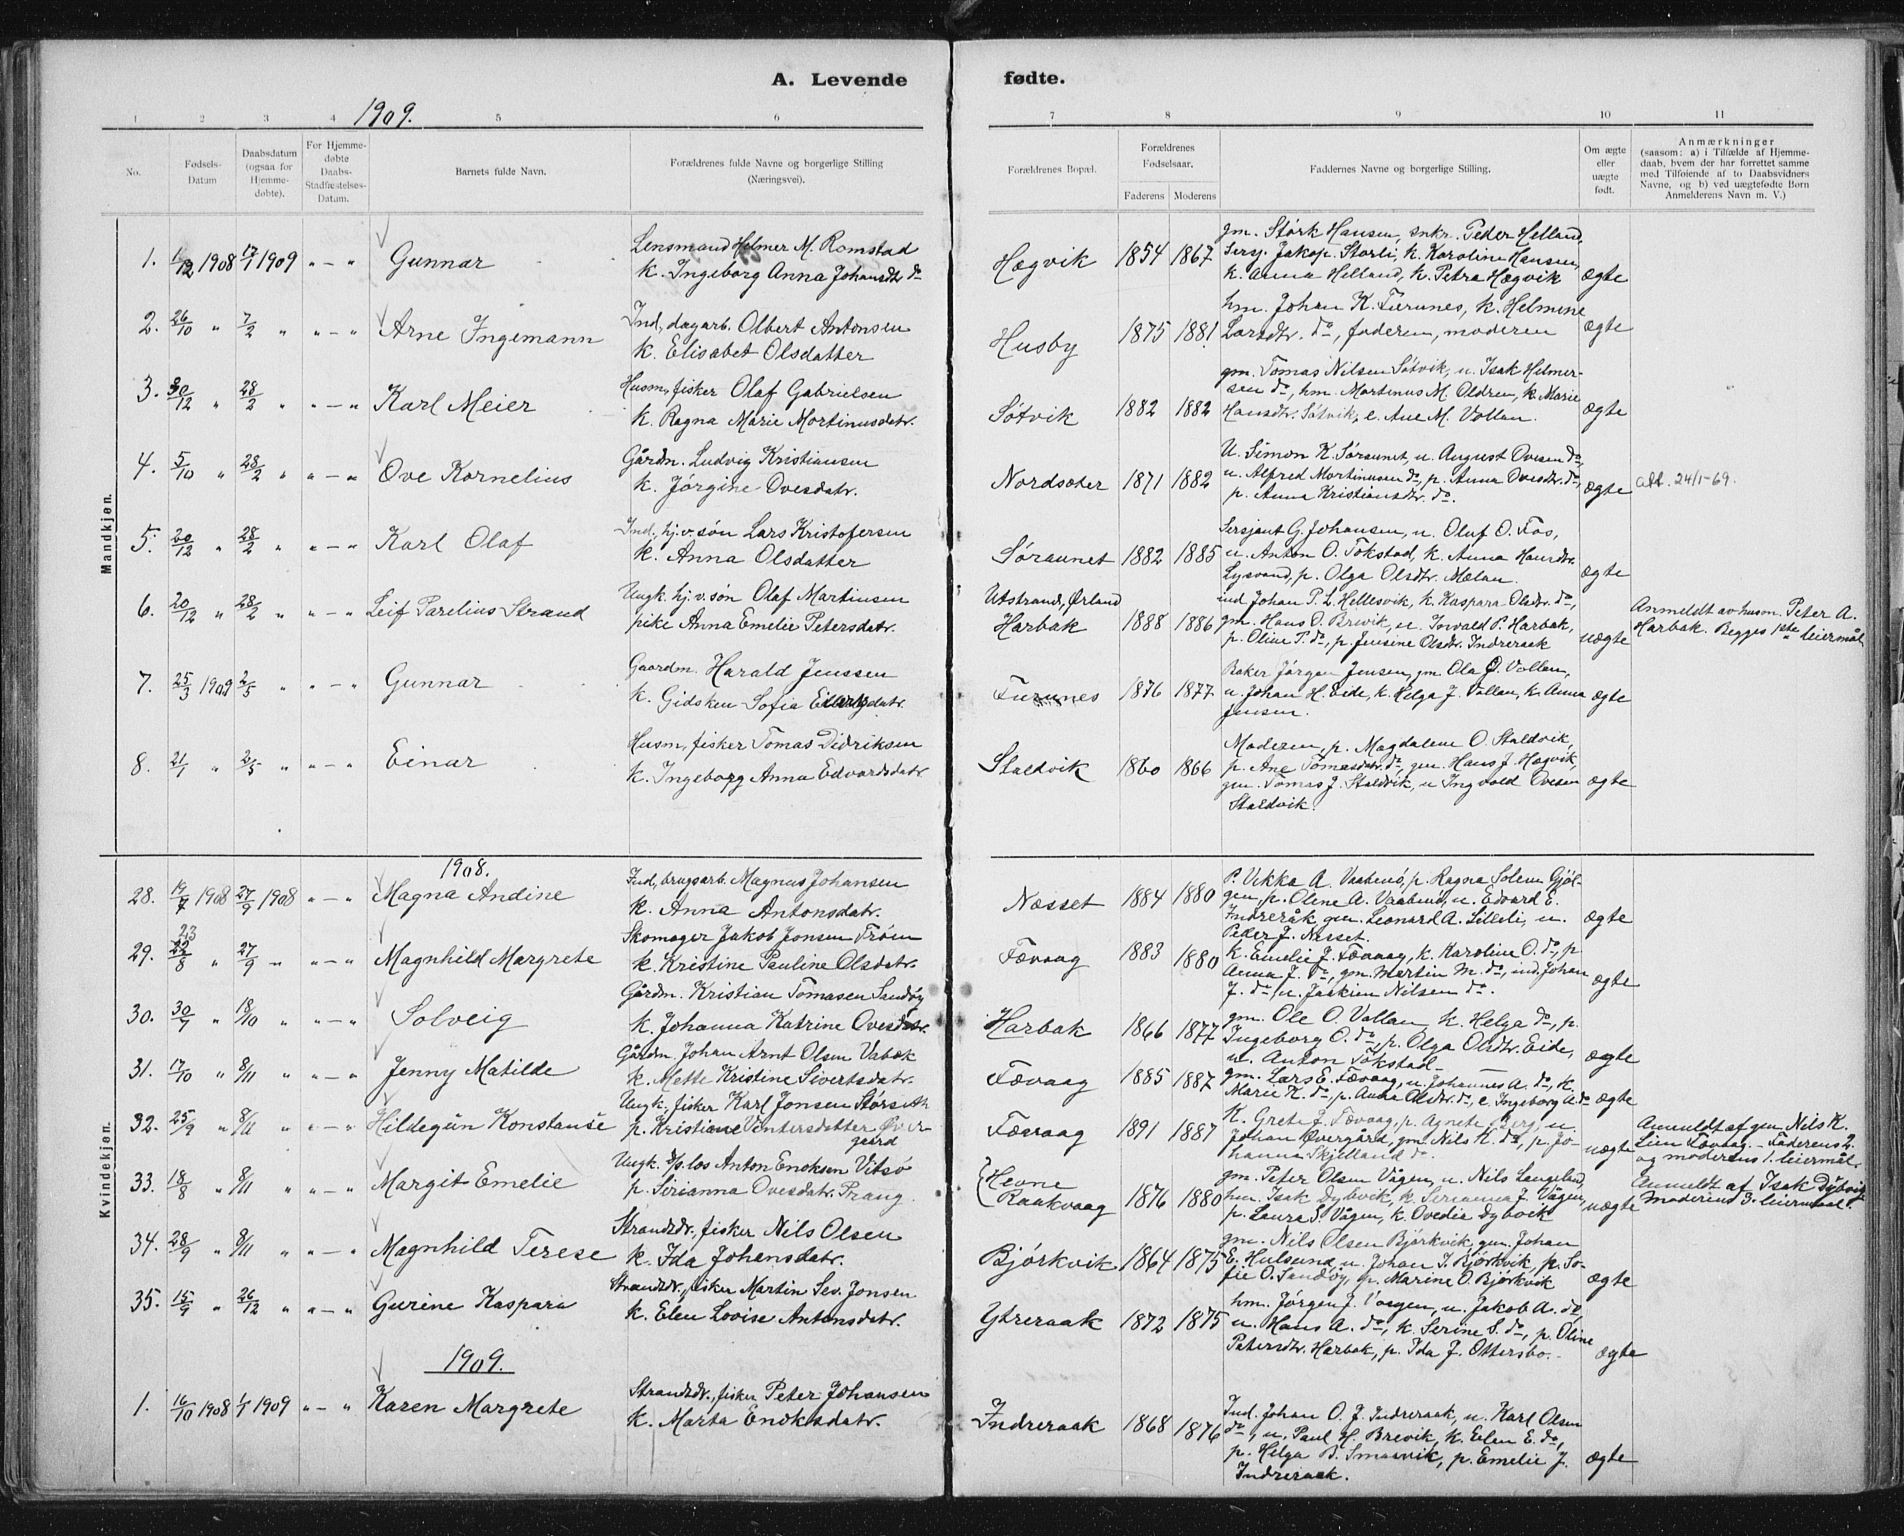 A. Levende fødte.
1909.
1 2 3 4 5 6 7 8 9 10 11
No.
Fødsels-
Datum
Daabsdatum
(ogsaa for
Hjemme-
døbte).
For Hjemme-
døbte
Daabs-
Stadfæstelses-
Datum.
Barnets fulde Navn.
Forældrenes fulde Navne og borgerlige Stilling
(Næringsvei).
Forældrenes Bopæl.
Forældrenes
Fødselsaar.
Faderens Moderens
Faddernes Navne og borgerlige Stilling.
Om ægte
eller
uægte
født.
Anmærkninger
(saasom: a) i Tilfælde af Hjemme-
daab, hvem der har forrettet samme
med Tilføiende af to Daabsvidners
Navne, og b) ved uægtefødte Børn
Anmelderens Navn m. V.)
Mandkjøn.
1. 1/12 1908 17/1 1909 " — " Gunnar
Lensmand Helmer M. Romstad
k. Ingeborg Anna Johansdtr do
Hægvik 1854 1867
gm. Størk Hansen, snkr. Peder Helland,
Sersj. Jakop Storli, k. Karoline Hansen,
k. Anna Helland, k. Petra Hægvik
ægte
2. 26/10 " 7/2 " " — " Arne Ingemann
Ind, dagarb. Olbert Antonsen
k. Elisabet Olsdatter
Husby 1875 1881
hm. Johan K. Furunes, k. Helmine
Larsdtr. do, faderen, moderen
ægte
3. 30/12 " 28/2 " " — " Karl Meier
Husm, fisker Olaf Gabrielsen
k. Ragna Marie Martinusdatr.
Søtvik 1882 1882
gm. Tomas Nilsen Søtvik, u. Isak Helmer-
sen do, hm. Martinus M. Oldren, k. Marie
Hansdtr. Søtvik, e. Ane M. Vollan.
ægte
4. 5/10 " 28/2 " " — " Ove Kornelius
Gårdn. Ludvig Kristiansen
k. Jørgine Ovesdatr.
Nordsæter 1871 1882
U. Simon K. Søraunet, u. August Ovesen do,
u. Alfred Martinusen do, p. Anna Ovesdtr. do,
p. Anna Kristiansdtr. do.
ægte
att. 24/1-69.
5. 20/12 " 28/2 " " — " Karl Olaf
Ind., hj.v. søn Lars Kristofersen
k. Anna Olsdatter
Søraunet 1882 1885
Sersjant G. Johansen, u. Oluf O. Fos,
u. Anton O. Tokstad, k. Anna Hansdtr.
Lysvand, p. Olga Olsdtr. Mælan.
ægte
6. 20/12 " 28/2 " " — " Leif Parelius Strand
Ungk. hj.v. søn Olaf Martinsen
pike Anna Emelie Petersdatr.
Utstrand, Ørland
Harbak 1888 1886
ind Johan P. L. Hellesvik, k. Kaspara Olsdtr. do,
gm. Hans O. Brevik, u. Torvald P. Harbak,
p. Oline P. do, p. Jensine Olsdtr. Indreraak
uægte
Anmeldt av husm. Peter A.
Harbak. Begges 1ste leiermål
7. 25/3 1909 2/5 " " — " Gunnar
Gaardm. Harald Jenssen
k. Gidsken Sofia datr.
Furunes 1876 1877
Baker Jørgen Jensen, gm. Ola O. Vollan,
u. Johan H. Eide, k. Helga J. Vollan, k. Anna
Jensen.
ægte
8. 21/1 " 2/5 " " — " Einar
Husm, fisker Tomas Didriksen
k. Ingeborg Anna Edvardsdatr
Staldvik 1860 1866
Moderen, p. Magdalene O. Staldvik,
p. Ane Tomasdatr. do, gm. Hans J. Hagvik,
gm. Tomas J. Staldvik, u Ingvald Ovesen
Staldvik.
ægte
Kvindekjøn.
1908.
28. 19/7 1908 27/9 1908 " — " Magna Andine
Ind, brugsarb. Magnus Johansen
k. Anna Antonsdatr.
Næsset 1884 1880
P. Vikka A. Vaabenö, p. Ragna Solem Gjöl-
gen, p. Oline A. Vaabenö, u. Edvard E.
Indreråk, gm. Leonard A. Lilleli, u.
Peder J. Nesset.
ægte
29. 23/8 " 27/9 " " — " Magnhild Margrete
Skomager Jakob Jonsen Trøen
k. Kristine Pauline Olsdatr.
Fævaag 1883 1880
k. Emelie J. Fævaag, k. Karoline O. do, p
Anna J. do, gm. Martin M. do, ind. Johan
J. do, u. Joakim Nilsen do.
ægte
30. 30/9 " 18/10 " " — " Solveig
Gårdm. Kristian Tomasen Sandøy
k. Johanna Katrine Ovesdtr.
Harbak 1866 1877
gm. Ole O. Vollan, k. Helga do, p.
Ingeborg O. do, p. Olga Olsdtr. Eide,
u. Anton Tokstad.
ægte
31. 17/10 " 8/11 " " — " Jenny Matilde
Gårdm. Johan Arnt Olsen Vabæk
k. Mette Kristine Sivertsdatr.
Fævaag 1885 1887
gm. Lars E. Fævaag, u. Johannes A. do, k.
Marie K. do, p. Anna Olsdtr. do, e Ingeborg A. do
ægte
32. 25/9 " 8/11 " " — " Hildegun Konstanse
Ungk., fisker Karl Jonsen Størseth
p. Kristiane Entersdatter Øver-
gaard
Fævaag 1891 1887
K. Grete J. Fævaag, p. Agnete Berg, u.
Johan Øvergård, gm. Nils K. do, p. Jo-
hanna Skjelland do.
uægte
Anmeldt af gm. Nils K.
Lien Fævaag. - Faderens 2.
og moderens 1. leiermål.
33. 18/8 " 8/11 " " — " Margit Emelie
Ungk. s/p. los Anton Enoksen Vitsø
p. Sirianna Ovesdatr. Prang.
Hevne
Raakvaag 1876 1880
gm. Peter Olsen Vågen, u. Nils Langeland,
hm. Isak Dybvik, k. Serianna J. Vågen,
p. Laura S. Vågen, k. Ovedia Dybvik
uægte
Anmeldt af Isak Dybvig
Moderens 3. leiermaal.
34. 28/9 " 8/11 " " — " Magnhild Terese
Strandsdr., fisker Nils Olsen
k. Ida Johansdatr.
Bjørkvik 1864 1875
gm. Nils Olsen Bjørkvik, gm. Johan
E. Hulsund, u. Johan I. Bjørkvik, p. So-
fie O. Sandøy, p. Marine O. Bjørkvik
ægte
35. 15/9 " 26/12 " " — " Gurine Kaspara
Strandsdr., fisker Martin Sev. Jonsen
k. Elen Lovise Antonsdatr.
Ytreraak 1872 1875
hm. Jørgen J. Vorgen, u. Jakob A. do,
u. Hans A. do, k. Serine S. do, p. Oline
Petersdtr. Harbak, p. Ida J. Ottersbo.
ægte
1909.
1. 16/10 1908 1/1 1909 " — " Karen Margrete
Strandsdr., fisker Peter Johansen
k. Marta Enoksdatr.
Indreraak 1868 1876
Ind. Johan O. J. Indreraak, u. Karl Olsen
do, u. Paul H. Brevik, k. Elen E. do,
p. Helga B. Smaavik, p. Emelie J.
Indreraak.
ægte